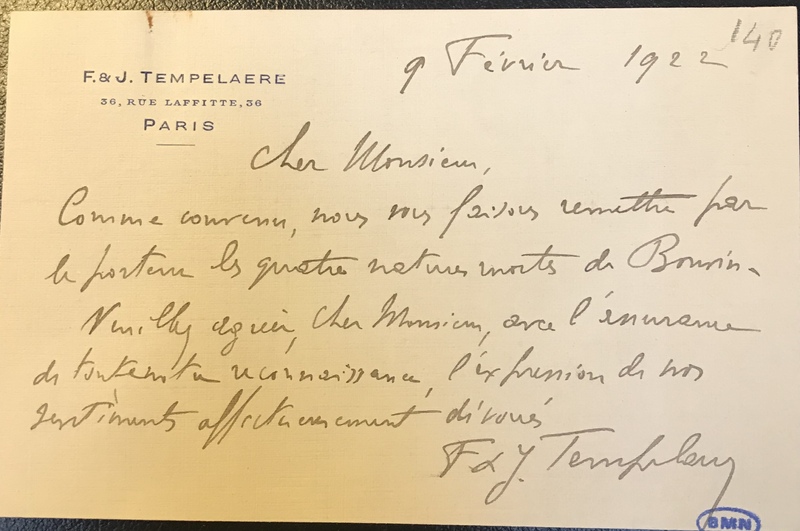 140
F. & J. TEMPELAERE
36, RUE LAFFITTE, 36
PARIS
9 Février 1922
Cher Monsieur,
Comme convenu, nous vous faisons remettre par
le porteur les quatre natures mortes de Bonvin.
Veuillez agréer, Cher Monsieur, avec l'assurance
de toute notre reconnaissance, l'expression de nos
sentiments affectueusement dévoués
F & J. Tempelaere
BMN